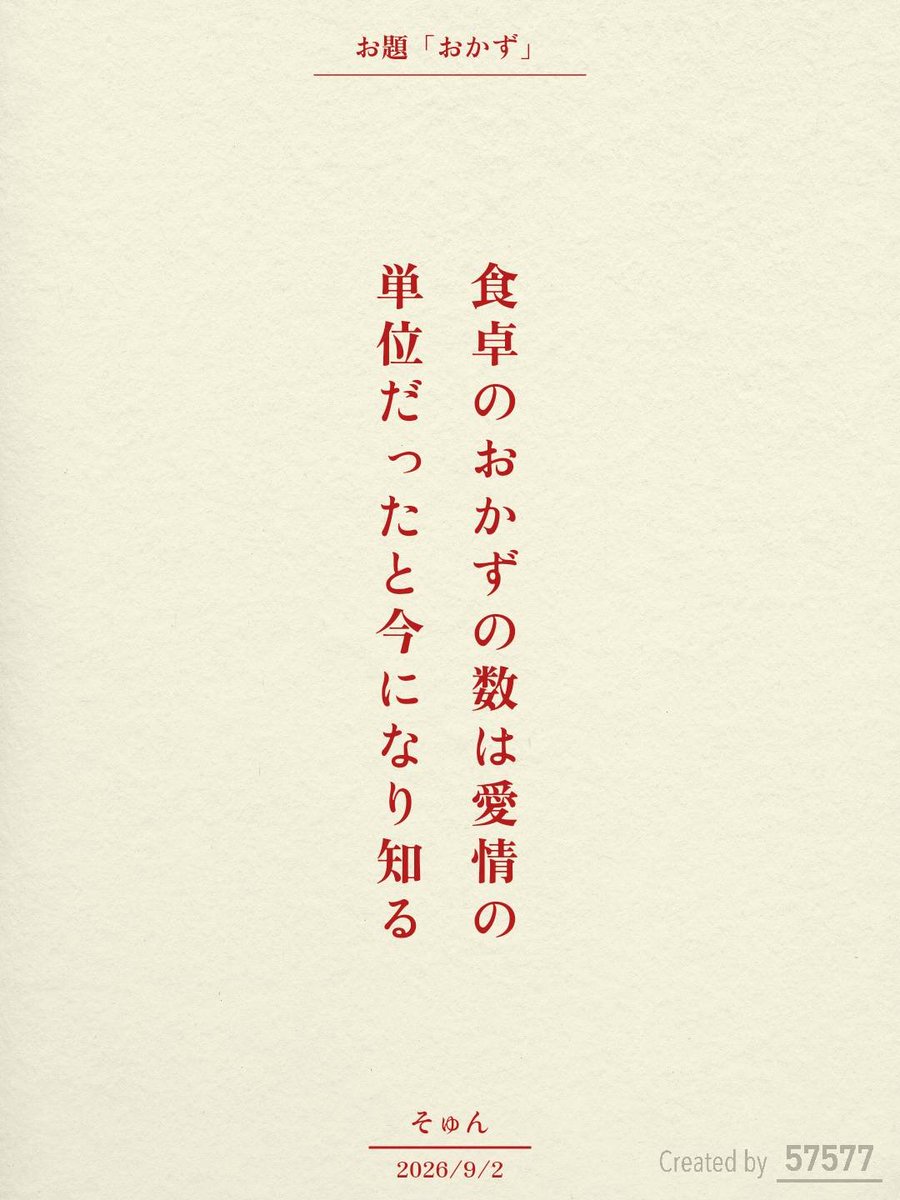 お題「おかず」
食卓のおかずの数は愛情の
単位だったと今になり知る
そゅん
2026/9/2
Created by 57577